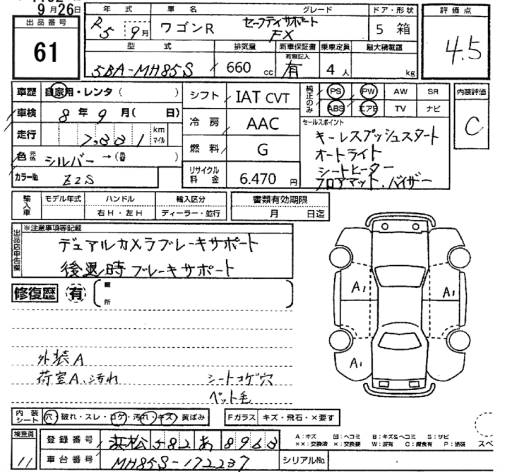 9月26日
出品番号
61
年式 車名 グレード ドア・形状
R5 9月 ワゴンR セーフティサポート FX 5 箱
評価点
4.5
型式 排気量 新車保証書 乗車定員 最大積載量
5BA-MH85S 660 cc 有 4人 kg
車歴 自家用・レンタ( )
シフト IAT CVT
純正のみ PS PW AW SR
ABS エアB TV ナビ
内装評価
C
車検 8年9月( 日)
冷房 AAC
セールスポイント
キーレスプッシュスタート
オートライト
シートヒーター
フロアマット、バイザー
走行 km マイル
燃料 G
色 シルバー →( )
カラーNo Z2S
リサイクル料金 6.470円
輸入車 モデル年式 ハンドル 輸入区分
右H・左H ディーラー・並行
書類有効期限
月 日迄
出品店申告欄
※注意事項等記載
デュアルカメラブレーキサポート
後退時ブレーキサポート
修復歴 有 箇所
A1 A1
外装A
荷室A、汚れ シートコゲ穴
ペット毛
内装シート 穴 破れ・スレ・コゲ・汚れ・キズ・黄ばみ
Fガラス キズ・飛石・×要す
検査員
11
登録番号 浜松582あ8963
車台番号 MH85S-172237
シリアルNo.